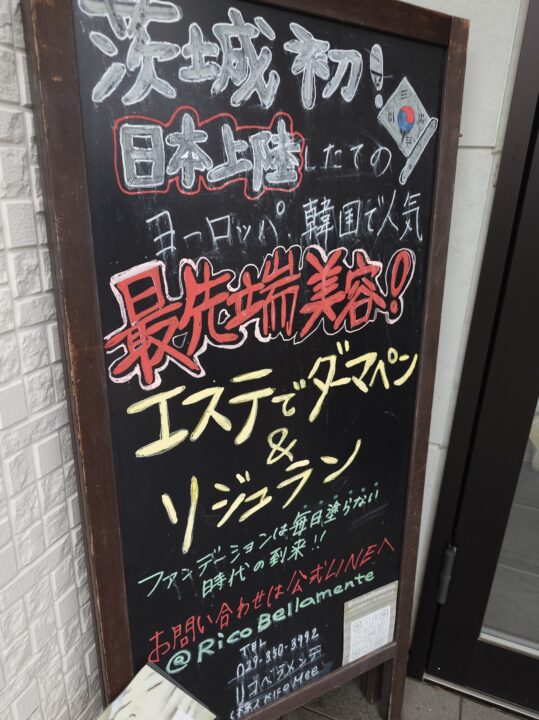 茨城初!
日本上陸したての
ヨーロッパ、韓国で人気
最先端美容!
エステでダーマペン
&
リジュラン
ファンデーションは毎日塗らない
時代の到来!!
お問い合わせは公式LINEへ
@Rico Bellamente
TEL
029-350-8992
リコベラメンテ